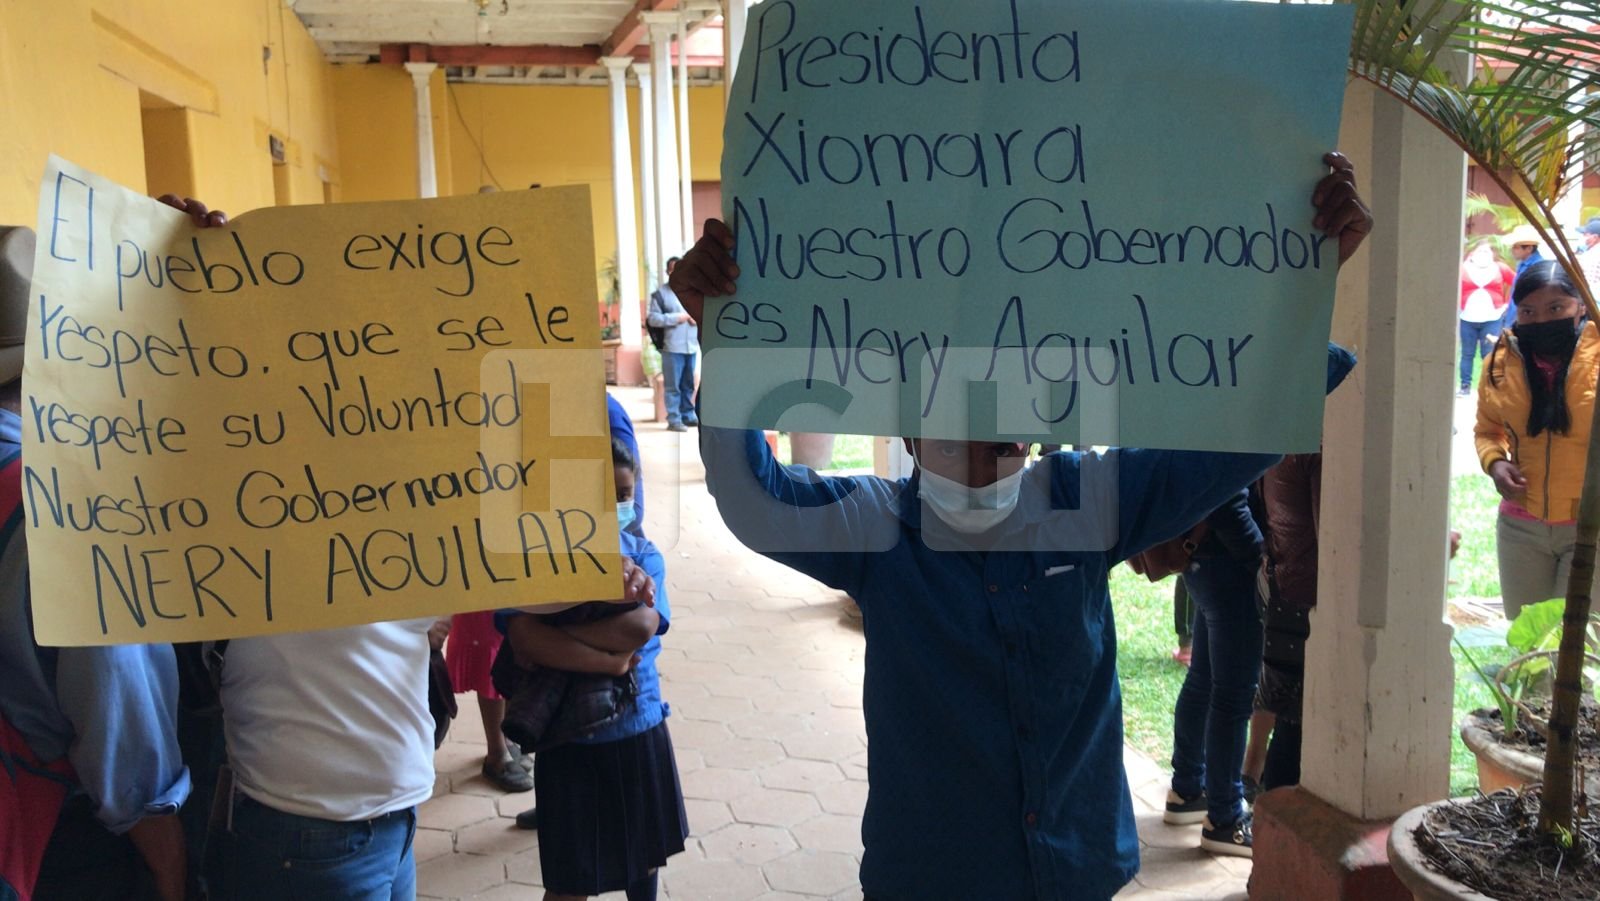 El pueblo exige
respeto. que se le
respete su Voluntad
Nuestro Gobernador
NERY AGUILAR
Presidenta
Xiomara
Nuestro Gobernador
es Nery Aguilar
HCH